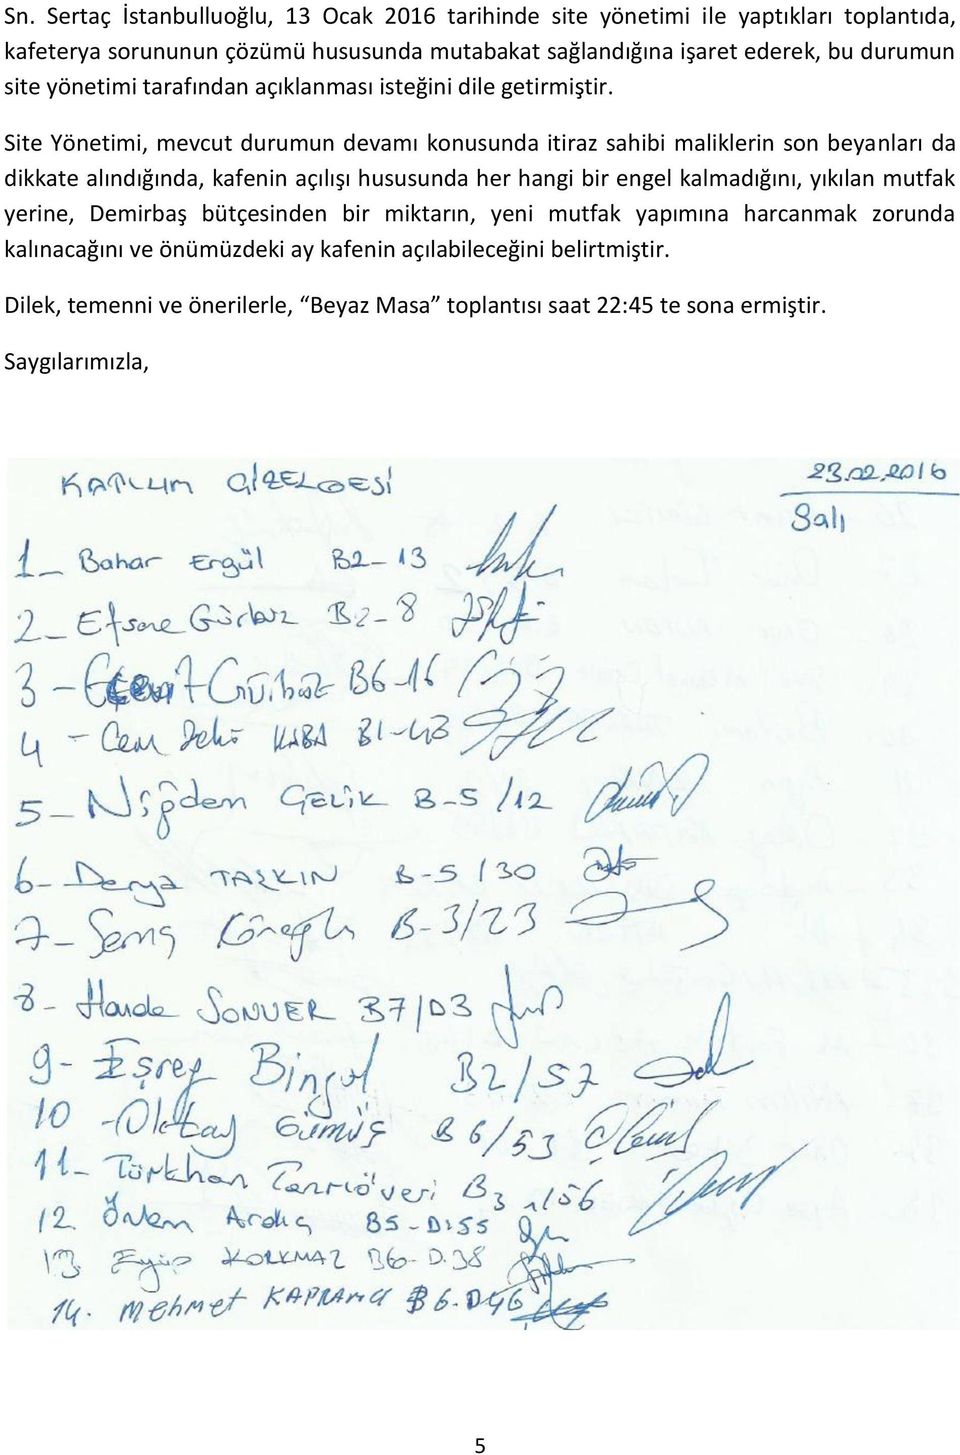 Sn. Sertaç İstanbulluoğlu, 13 Ocak 2016 tarihinde site yönetimi ile yaptıkları toplantıda,
kafeterya sorununun çözümü hususunda mutabakat sağlandığına işaret ederek, bu durumun
site yönetimi tarafından açıklanması isteğini dile getirmiştir.
Site Yönetimi, mevcut durumun devamı konusunda itiraz sahibi maliklerin son beyanları da
dikkate alındığında, kafenin açılışı hususunda her hangi bir engel kalmadığını, yıkılan mutfak
yerine, Demirbaş bütçesinden bir miktarın, yeni mutfak yapımına harcanmak zorunda
kalınacağını ve önümüzdeki ay kafenin açılabileceğini belirtmiştir.
Dilek, temenni ve önerilerle, “Beyaz Masa” toplantısı saat 22:45 te sona ermiştir.
Saygılarımızla,
KATILIM ÇİZELGESİ 23.02.2016
Salı
1- Bahar Ergül B2-13
2- Efsane Gürbüz B2-8
3- B6-16
4- Cem KABA B1-43
5- Niğdem ÇELİK B-5/12
6- Derya TAŞKIN B-5/30
7- B-3/23
8- Hande SONUVER B7/D3
9- Eşref Bingöl B2/57
10- Oktay Gümüş B6/53
11- Türkhan Tanrıöveri B3 /156
12. Özlem Ardıç B5-D:55
13. Eyüp KORKMAZ B6-D.38
14. MEHMET B6.D46
5